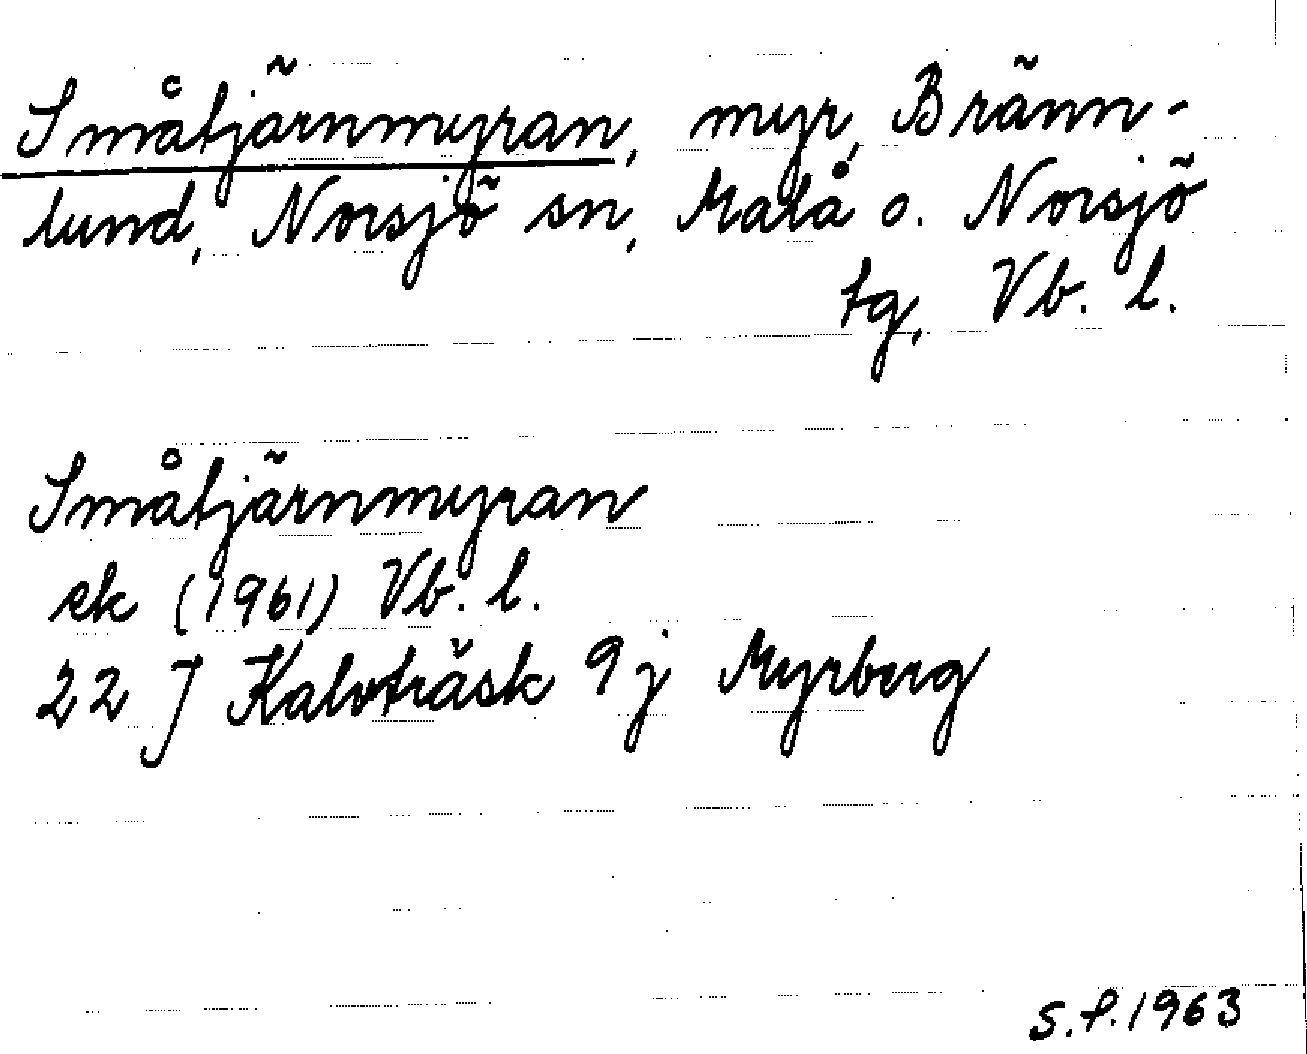 Småtjärnmyran, myr, Bränn-
lund, Norsjö sn, Malå o. Norsjö
tg, Vb. l.
Småtjärnmyran
ek (1961) Vb. l.
22 J Kalvträsk 9 j Myrberg
S.f. 1963